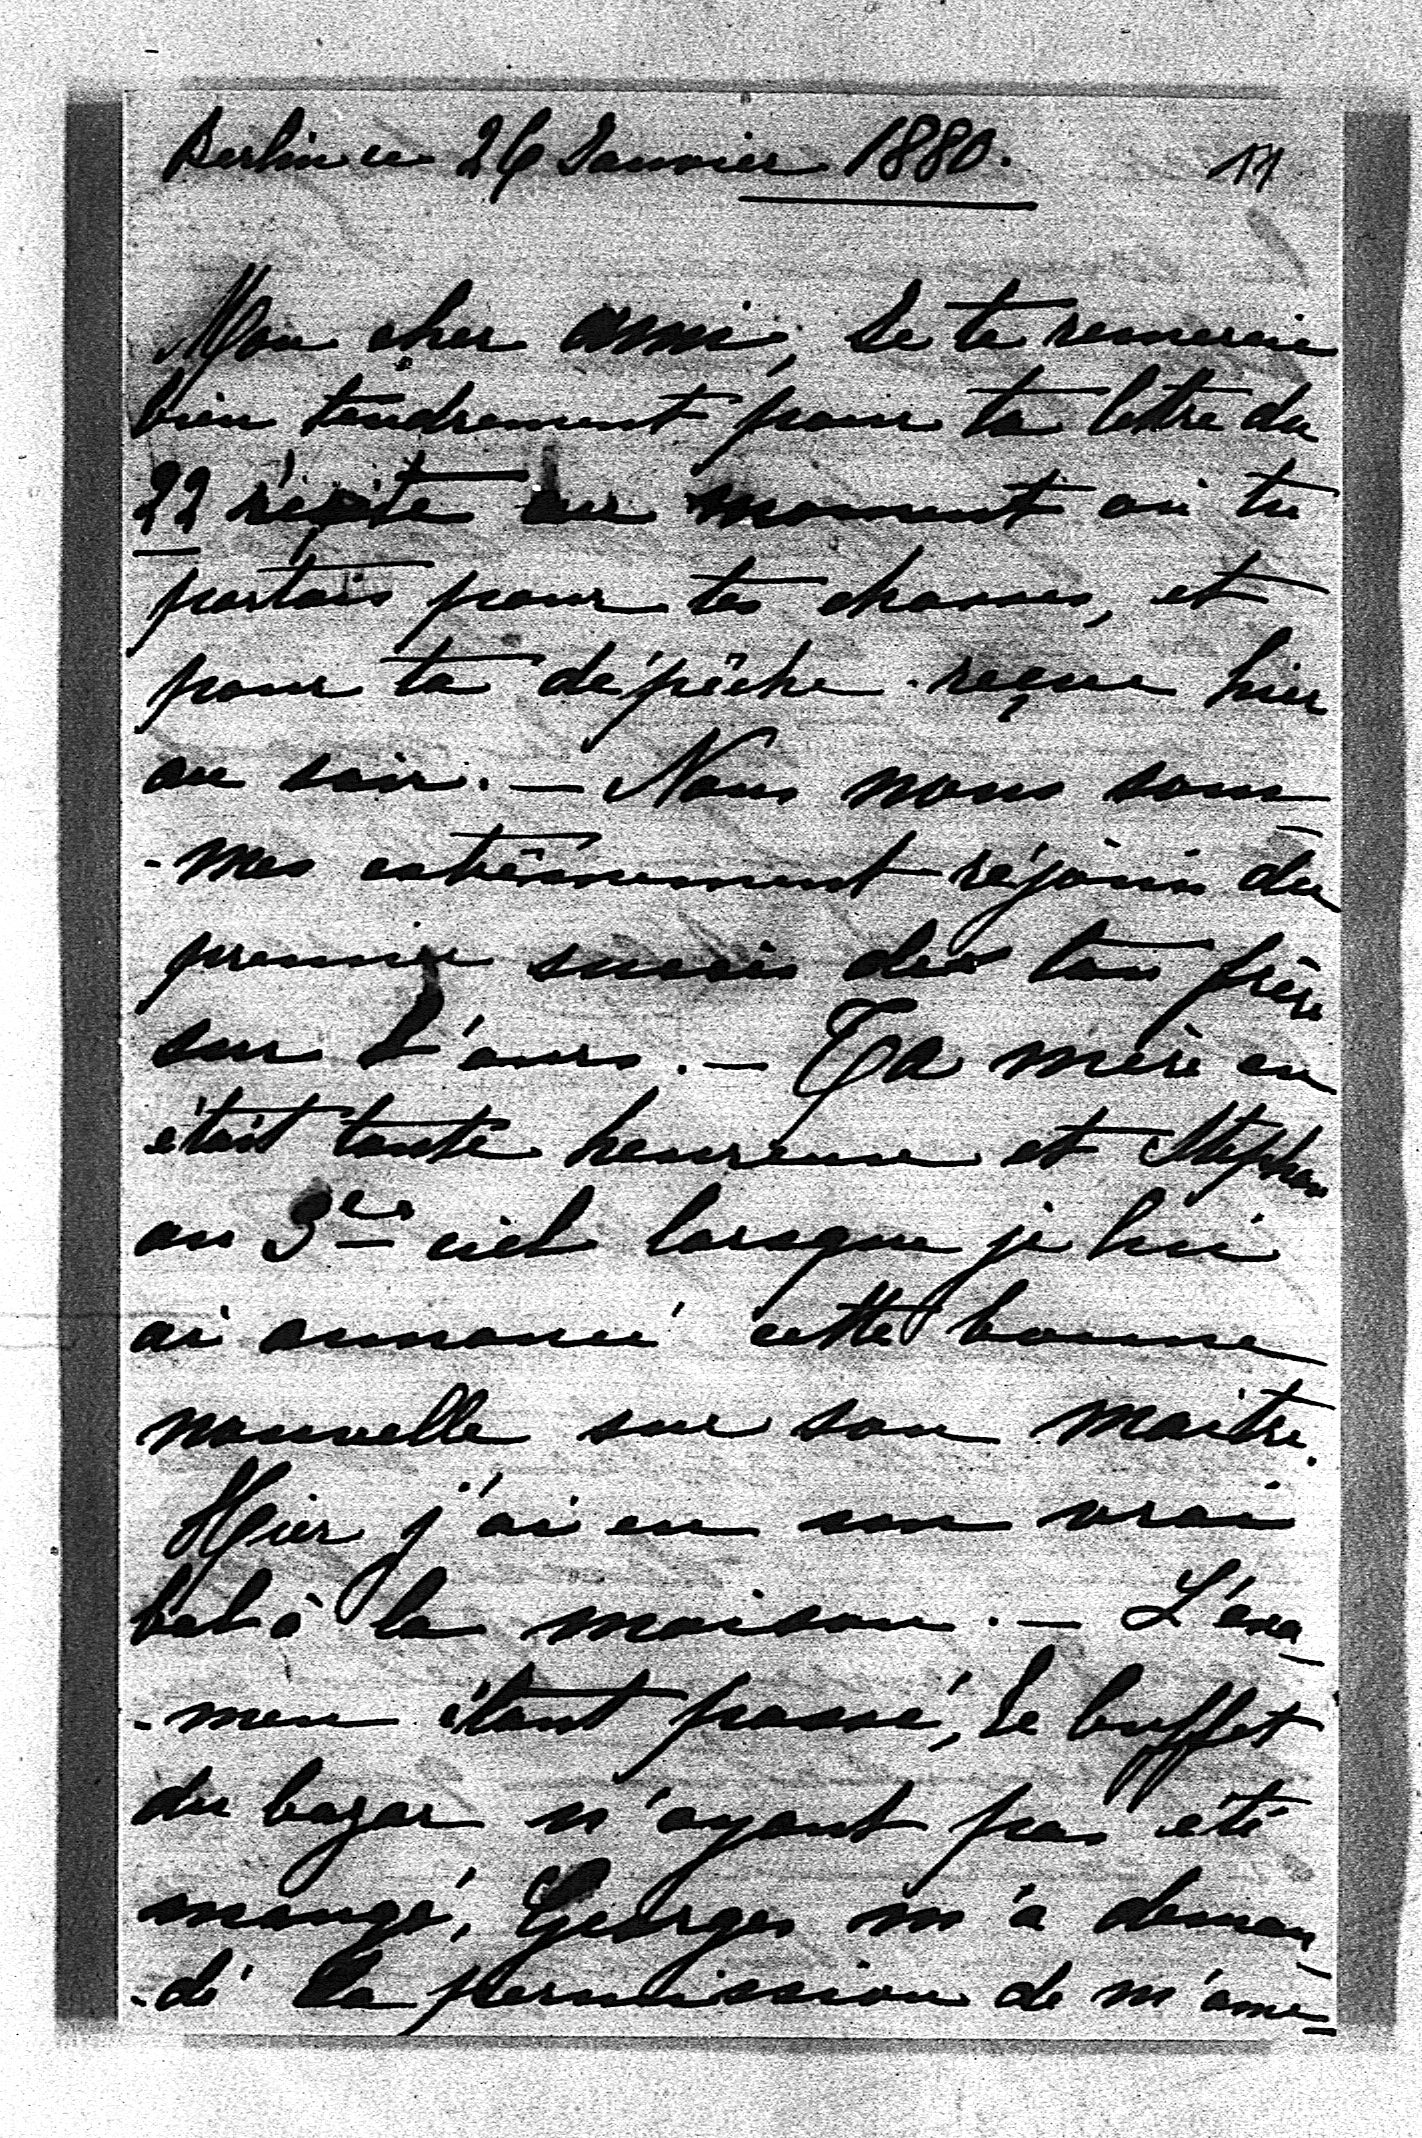 Berlin ce 26 Janvier 1880. 11
Mon cher ami, Je te remercie
bien tendrement pour ta lettre du
22 au moment où tu
partais pour tes chasses, et
pour ta dépêche reçue hier
au soir. — Nous nous som-
-mes extrêmement réjouis du
premier succès de ton frère
sur l'ours. — Ta mère en
était toute heureuse et Stephan
au 3me ciel lorsque je lui
ai annoncé cette bonne
nouvelle sur son maître.
Hier j'ai eu un vrai
bal à la maison. — L'exa-
-men étant passé, le buffet
du bazar n'ayant pas été
mangé, Georges m'a deman-
-dé la permission de m'ame-